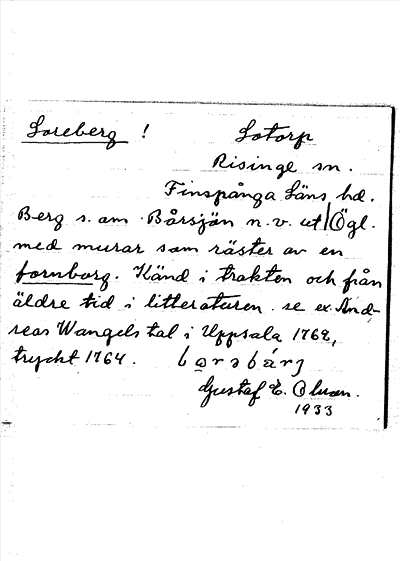 Loreberg ! Lotorp
Risinge sn.
Finspånga Läns hd.
Berg s. om Bårsjön n.v. ut/Ögl.
med murar som räster av en
fornborg. Känd i trakten och från
äldre tid i litteraturen. se ex. And-
reas Wangels tal i Uppsala 1762,
tryckt 1764.
Gustaf E. Olsson.
1933